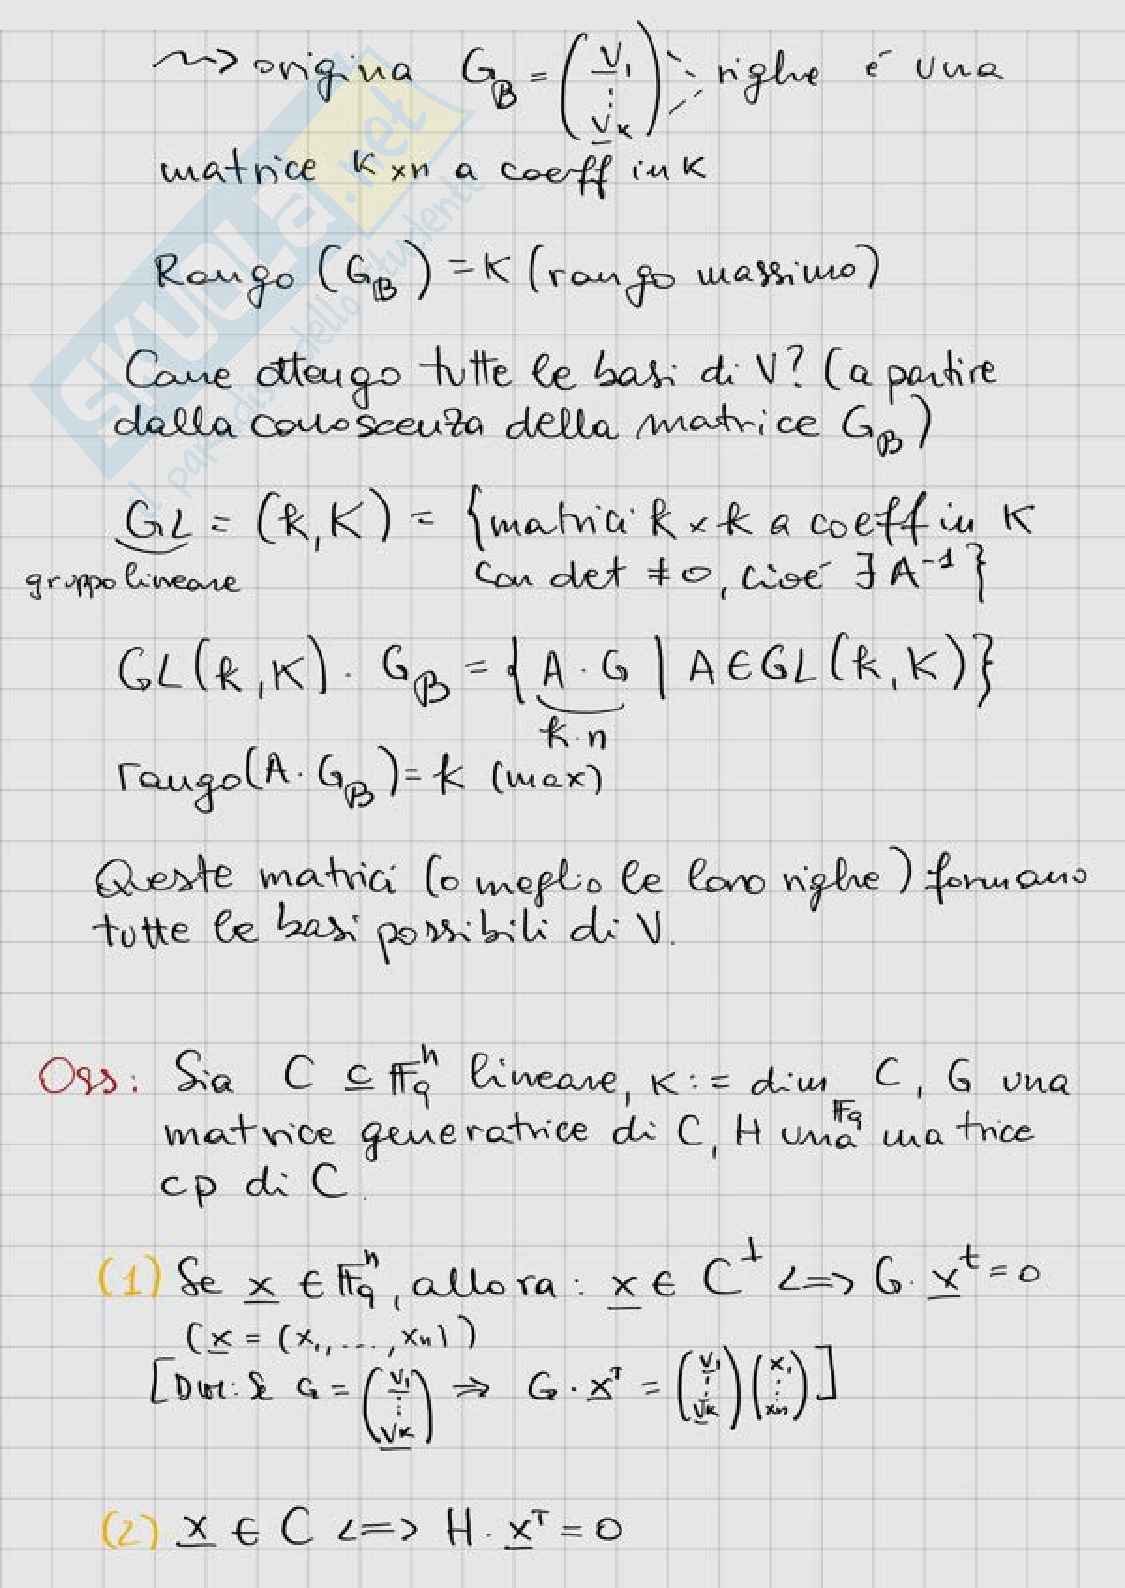 ~~> origina G_B = (v_1 ⋮ v_k) righe é una
matrice K×n a coeff in K
Rango (G_B) = K (rango massimo)
Come ottengo tutte le basi di V? (a partire
dalla conoscenza della matrice G_B)
GL = (k, K) = {matrici k × k a coeff in K
gruppo lineare
con det ≠ 0, cioé ∃ A^-1}
GL(k, K) · G_B = {A · G | A ∈ GL(k, K)}
k · n
rango(A · G_B) = k (max)
Queste matrici (o meglio le loro righe) formano
tutte le basi possibili di V.
Oss: Sia C ⊆ F_q^n lineare, K := dim_{F_q} C, G una
matrice generatrice di C, H una matrice
cp di C.
(1) Se x ∈ F_q^n, allora: x ∈ C^⊥ <=> G · x^t = 0
(x = (x_1, ..., x_n))
[Dim: Se G = (v_1 ⋮ v_k) => G · x^T = (v_1 ⋮ v_k)(x_1 ⋮ x_n)]
(2) x ∈ C <=> H · x^T = 0
SKUOLA.net
il paradiso dello studente